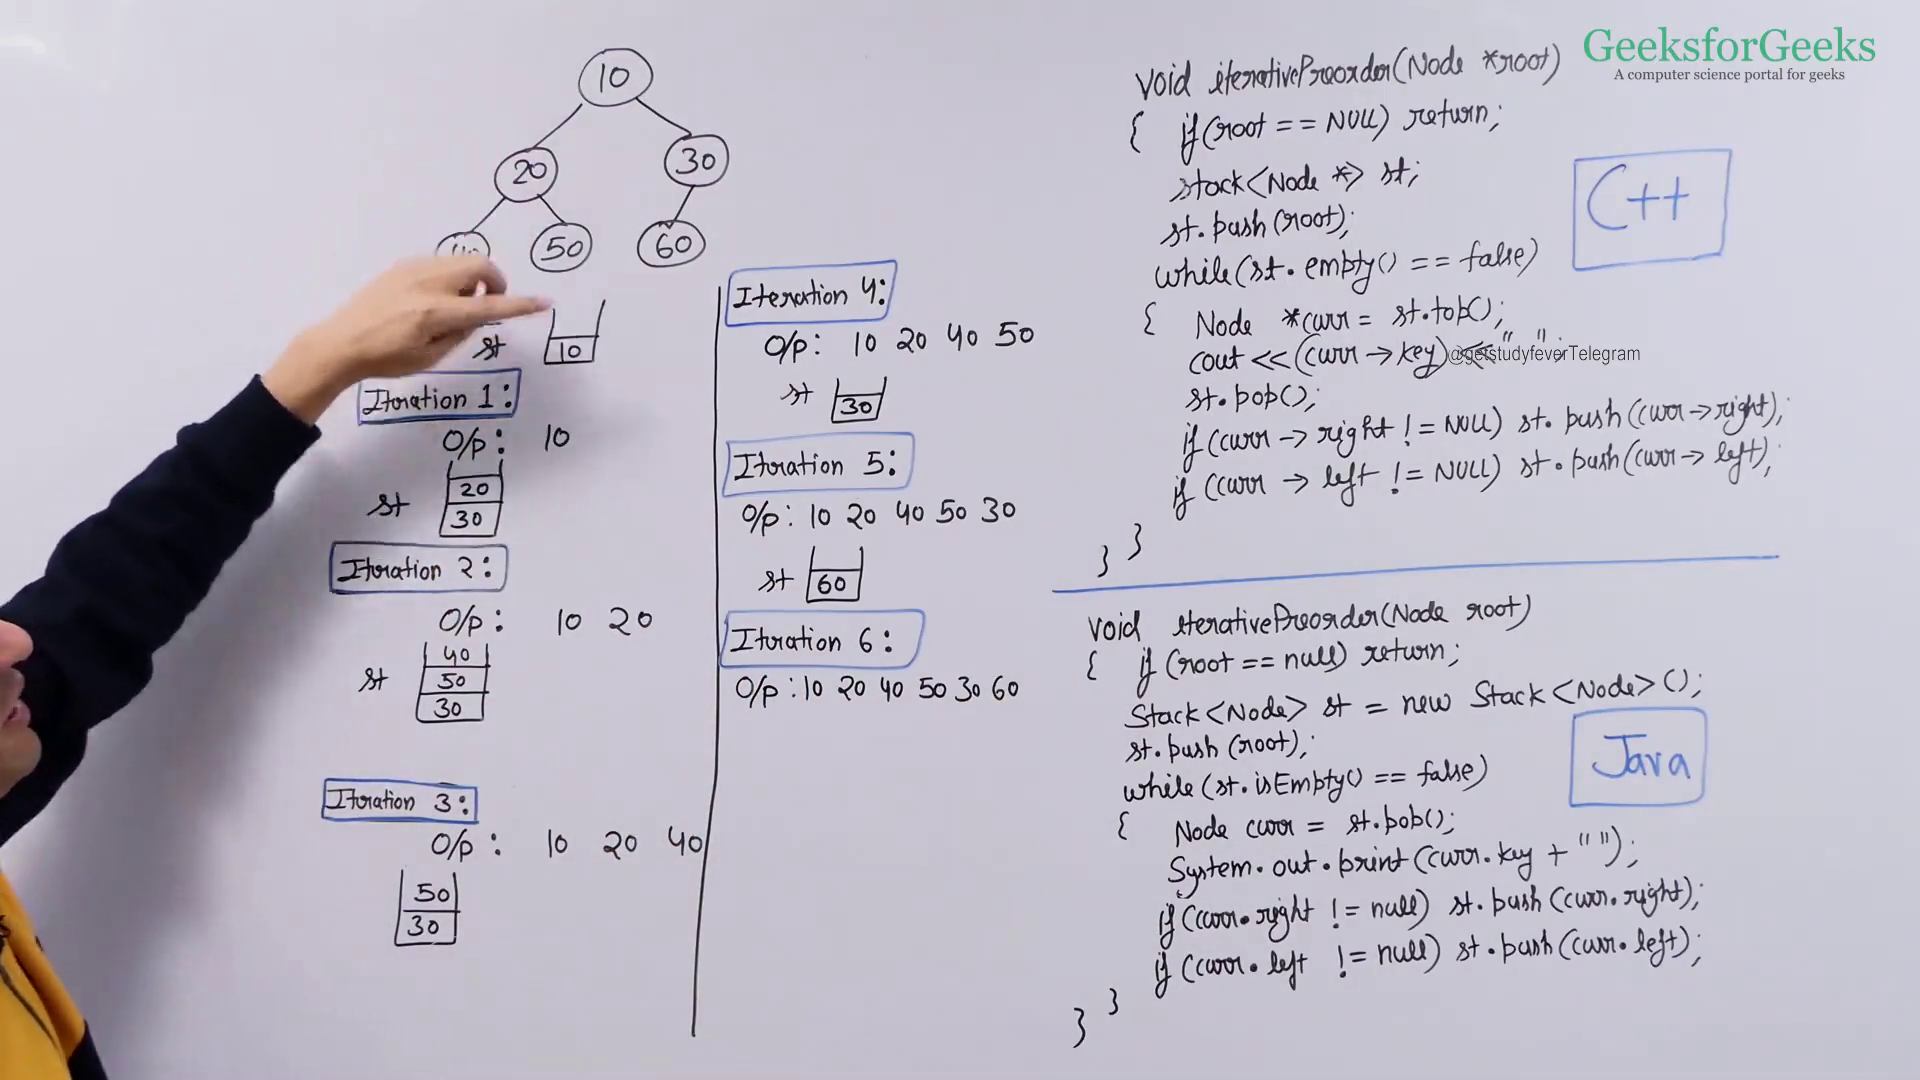 GeeksforGeeks
A computer science portal for geeks
10
20
30
50
60
st
10
Iteration 1:
O/p: 10
st
20
30
Iteration 2:
O/p: 10 20
st
40
50
30
Iteration 3:
O/p: 10 20 40
50
30
Iteration 4:
O/p: 10 20 40 50
st
30
Iteration 5:
O/p: 10 20 40 50 30
st
60
Iteration 6:
O/p: 10 20 40 50 30 60
void iterativePreorder(Node *root)
{ if(root == NULL) return;
stack<Node *> st;
st.push(root);
while(st.empty() == false)
{ Node *curr = st.top();
cout << (curr->key) << " ";
@getstudyfeverTelegram
st.pop();
if(curr->right != NULL) st.push(curr->right);
if(curr->left != NULL) st.push(curr->left);
} }
C++
void iterativePreorder(Node root)
{ if(root == null) return;
Stack<Node> st = new Stack<Node>();
st.push(root);
while(st.isEmpty() == false)
{ Node curr = st.pop();
System.out.print(curr.key + " ");
if(curr.right != null) st.push(curr.right);
if(curr.left != null) st.push(curr.left);
} }
Java